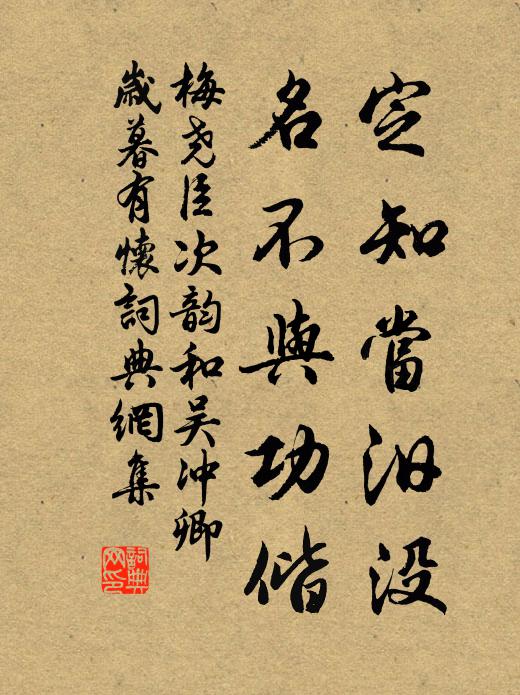 定知當汩没
名不與功偕
梅堯臣次韵和吴冲卿
歲暮有懷詞典網集
詞典网印